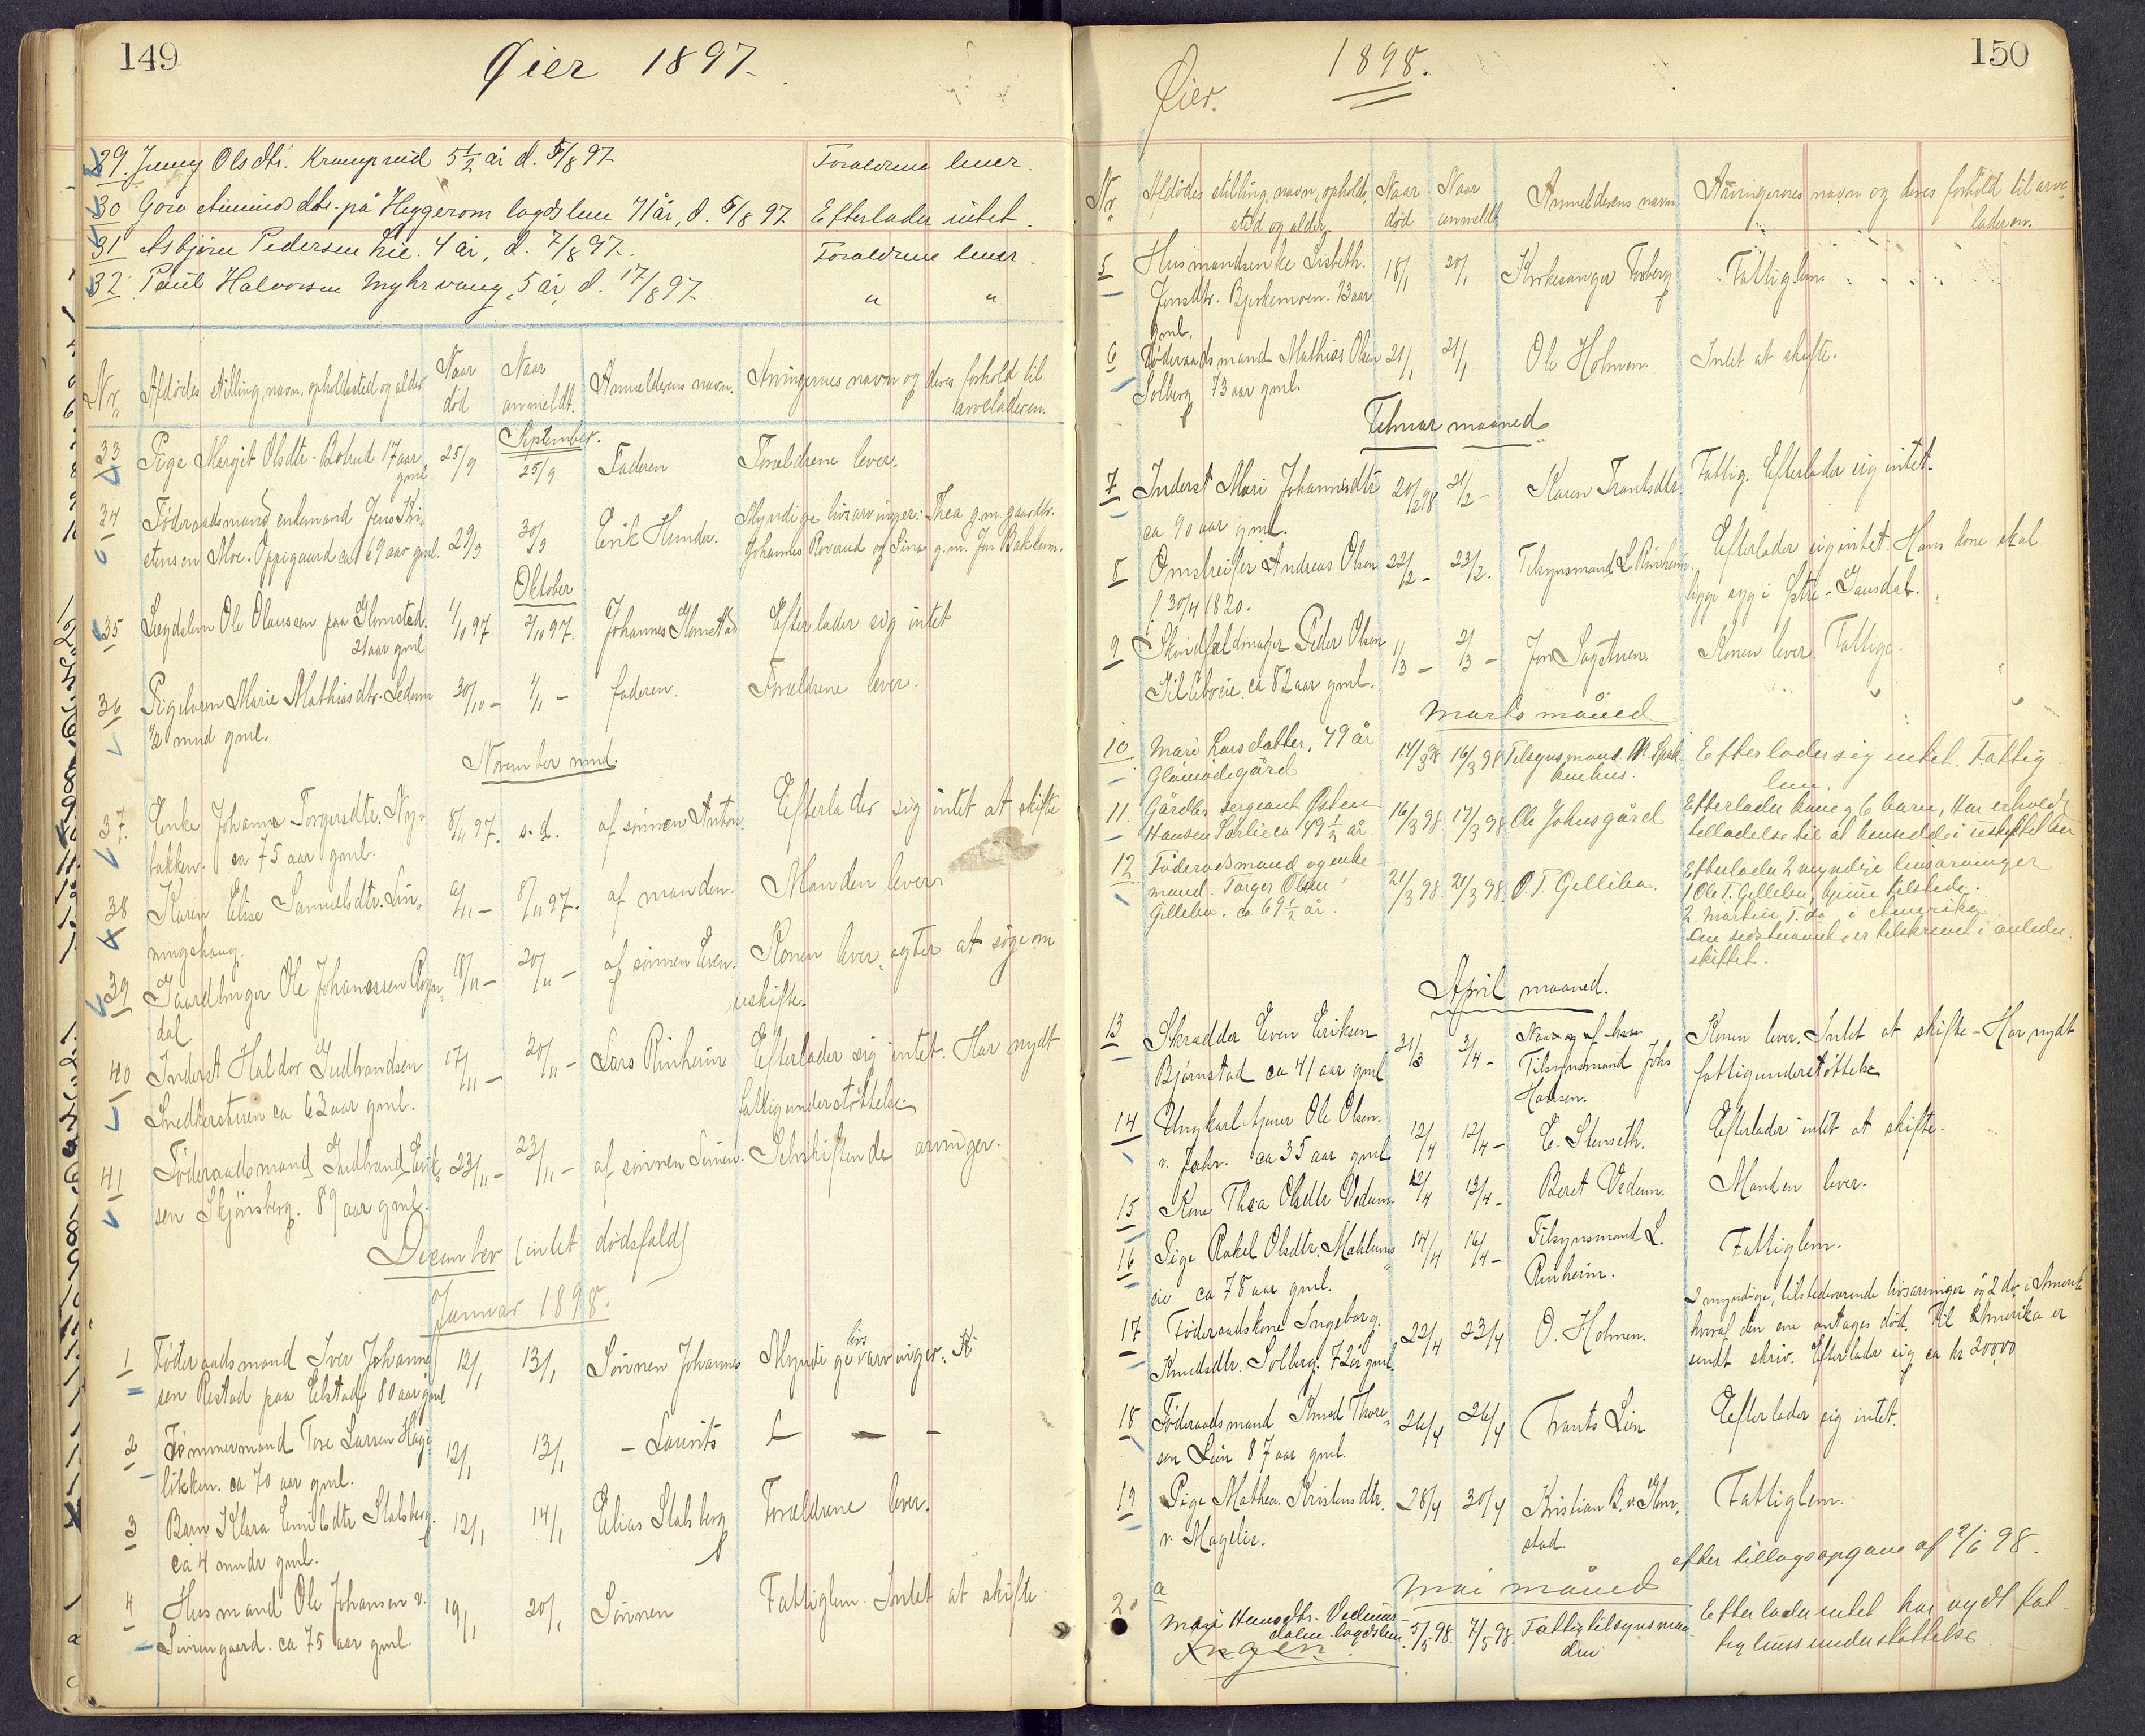 149
Øier 1897.
29. Jenny Olsdtr. Kramprud 5½ år d. 5/8 97 Forældrene lever.
30 Goro dtr. på Heggerom lagdslem 71 år, d. 5/8 97 Efterlader intet.
31 Asbjørn Pedersen Lie. 4 år, d. 7/8 97. Forældrene lever.
32. Paul Halvorsen Myhrvang, 5 år, d. 17/8 97 " "
Nr. Afdødes stilling, navn, opholdssted og alder Naar død Naar anmeldt. Anmelderens navn. Arvingernes navn og deres forhold til arveladeren.
September.
33 Pige Margit Olsdtr. Botrud 17 aar gml 25/9 25/9 Faderen Forældrene lever.
34 Føderaadsmand enkemand Jens Kri-
stensen Moe. Oppigaard ca 69 aar gml. 29/9 30/9 Erik Hunder. Myndige livsarvinger: Thea g.m. gaardbr.
Johannes Roverud og Sina g.m. Jon Baklien.
Oktober
35 Lægdslem Ole Olaussen paa Glomstad. 21 aar gml 1/10 97 2/10 97. Johannes Glomstad Efterlader sig intet
36 Pigebarn Marie Mathiasdtr. Ledum
½ mnd gml. 30/10 – 1/11 – faderen. Forældrene lever.
November mnd.
37. Enke Johanne Torgersdtr. Ny-
bakken. ca 75 aar gml. 8/11 97. s. d. af sønnen Anton. Efterlader sig intet at skifte
38 Karen Elise Samuelsdtr. Lin-
ningshaug. 6/11 – 8/11 97. af manden. Manden lever.
39 Gaardbruger Ole Johanessen Rogn-
dal. 18/11 – 20/11 – af sønnen Even. Konen lever, agter at søge om
uskifte.
40 Inderst Haldor Gudbrandsen
Snedkerstuen ca 63 aar gml. 17/11 – 20/11 – Lars Rinheim Efterlader sig intet. Har nydt
fattigunderstøttelse.
41 Føderaadsmand Gudbrand Erik-
sen Skjønsberg. 89 aar gml. 23/11 – 23/11 – af sønnen Simen. Selvskiftende arvinger.
December (intet dødsfald)
Januar 1898.
1 Føderaadsmand Iver Johanne-
sen Rustad paa Elstad 80 aar gml 12/1 13/1 Sønnen Johannes Myndige livsarvinger.
2 Tømmermand Tore Larsen Hage-
løkken. ca 70 aar gml. 12/1 13/1 – Laurits – –
3 Barn Klara Emilsdtr Stalsberg.
ca 4 mndr gml. 12/1 14/1 Elias Stalsberg Forældrene lever.
4 Husmand Ole Johansen v.
Simengaard. ca 75 aar gml. 19/1 20/1 Sønnen Fattiglem. Intet at skifte
150
1898.
Øier.
Nr. Afdødes stilling, navn, opholds-
sted og alder. Naar død Naar anmeldt Anmelderens navn Arvingernes navn og deres forhold til arve-
laderen.
5 Husmandsenke Lisbeth
Jensdtr. Bjerkemoen. 73 aar
gml. 18/1 20/1 Kirkesanger Forberg Fattiglem.
6 Føderaadsmand Mathias Olsen
Solberg 73 aar gml. 21/1 21/1 Ole Holmen. Intet at skifte.
Februar maaned
7 Inderst Mari Johannesdtr
ca 90 aar gml. 20/2 98 21/2 – Karen Frantsdtr. Fattig. Efterlader sig intet.
8 Omstreifer Andreas Olsen
f. 30/4 1820. 22/2 – 23/2. Tilsynsmand L. Rinheim. Efterlader sig intet. Hans kone skal
ligge syg i Østre-Gausdal.
9 Skindfældmager Peder Olsen
ca 82 aar gml. 1/3 – 2/3 – Jon Sagstuen. Konen lever. Fattige.
Marts måned
10 Mari Larsdatter, 49 år
Glømmegård 14/3 98 16/3 98 Tilsynsmand Efterlader sig intet. Fattig-
lem.
11. Gårdbr. sergeant Østen
Hansen Sørlie ca 49½ år. 16/3 98 17/3 98 Ole Johnsgård Efterlader kone og 6 barn, Har erholdt
tilladelse til at hensidde i uskiftet bo
12 Føderaadsmand og enke-
mand. Torger Olsen
Gilleba. ca 69½ år. 21/3 98. 21/3 98. O. T. Gilleba. Efterlader 2 myndige livsarvinger
1 Ole T. Gilleba, hjeme tilstede.
2. Martin T. do i Amerika
Den sidstnævnte er tilskrevet i anledn.
skiftet.
April maaned.
13 Skrædder Even Eriksen
Bjørnstad ca 41 aar gml 31/3 3/4 –
Tilsynsmand Johs
Hansen. Konen lever. Intet at skifte – Har nydt
fattigunderstøttelse
14 Ungkarl tjener Ole Olsen.
v. Johr. ca 35 aar gml 12/4 12/4 – E. Stenseth. Efterlader intet at skifte.
15 Kone Thea Olsdtr Vedum 12/4 13/4 – Beret Vedum. Manden lever.
16 Pige Rakel Olsdtr. Mæhlums-
eie ca 78 aar gml. 14/4 16/4 – Tilsynsmand L.
Rinheim. Fattiglem.
17 Føderaadskone Ingeborg
Knudsdtr. Solberg. 72 år gml. 22/4 23/4 O. Holmen. 2 myndige, tilstedeværende livsarvinger og 2 do i Amerik
hvoraf den ene antages død. Til Amerika er
sendt skriv. Efterlader sig ca kr 200,00
18 Føderaadsmand Knud Thore-
sen Lien 87 aar gml. 26/4 26/4 Frants Lien Efterlader sig intet.
19 Pige Mathea Kristensdtr.
v Magelie. 28/4 30/4 Kristian B. v. Glom-
stad. Fattiglem.
efter tillægsopgave af 2/6 98.
Mai måned
20 a Mari Hansdtr. Vedums-
dalen lagdslem. 5/5 98. 7/5 98. Fattigtilsynsman-
den Efterlader intet har nydt fat-
tiglemsunderstøttelse
Ingen